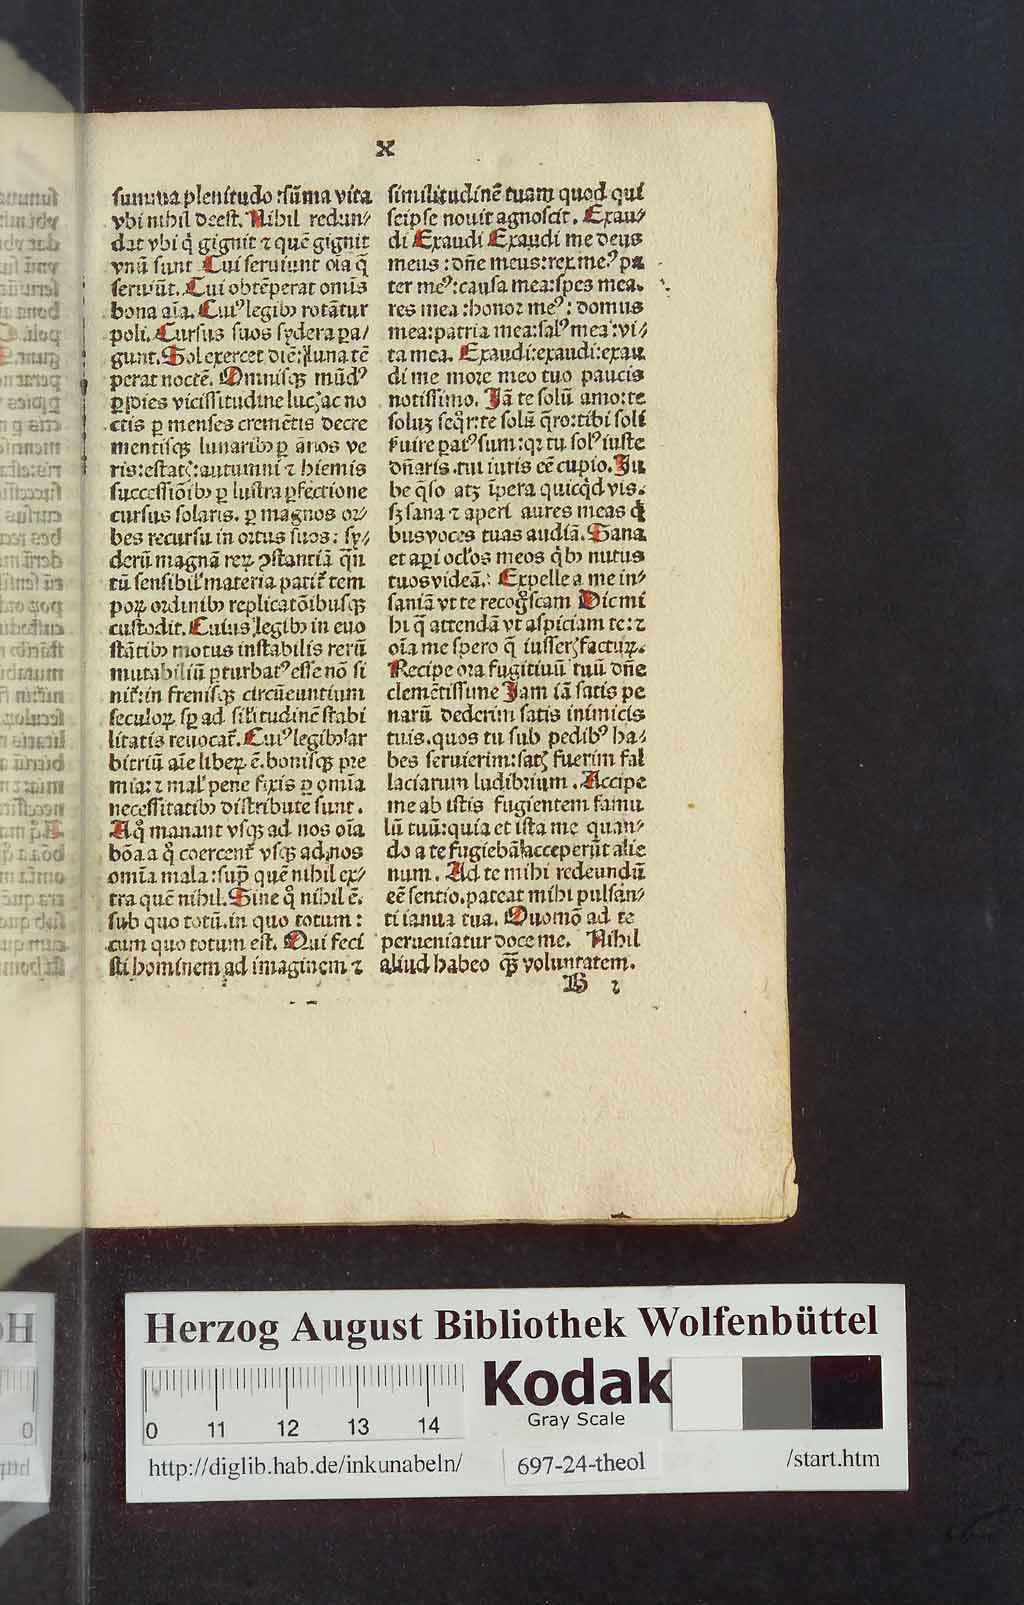 X
summa plenitudo :sūma vita
vbi nihil deest. Nihil redun⸗
dat vbi q̇ gignit ⁊ quē gignit
vnū sunt Cui seruiunt oīa q̄
seruiūt. Cui obtēperat omīs
bona aīa. Cuiꝰ legibꝫ rotātur
poli. Cursus suos sydera pa⸗
gunt. Sol exercet diē: luna tē
perat noctē. Omnisqꝫ mūdꝰ
ꝑ dies vicissitudine lucꝭ ac no
ctis ꝑ menses cremētis decre
mentisqꝫ lunaribꝫ ꝑ ānos ve
ris:estatꝭ:autumni ⁊ hiemis
successiōibꝫ ꝑ lustra ꝑfectione
cursus solaris. ꝑ magnos or⸗
bes recursu in ortus suos: sy⸗
derū magnā reꝝ ꝯstantiā q̄n
tū sensibil' materia patit᷑ tem
poꝝ ordinibꝫ replicatōibusqꝫ
custodit. Cuius legibꝫ in euo
stātibꝫ motus instabilis rerū
mutabiliū ꝑturbatꝰ esse nō si
nit᷑:in frenisqꝫ circūeuntium
seculoꝝ sꝑ ad sil'itudinē stabi
litatis reuocat᷑. Cuiꝰ legibꝫ ar
bitriū aīe libeꝝ ē. bonisqꝫ pre
mia: ⁊ mal' pene fixis ꝑ omīa
necessitatibꝫ distribute sunt.
A qͦ manant vsqꝫ ad nos oīa
bōa a qͦ coercent᷑ vsqꝫ ad nos
omīa mala :sup̄ quē nihil ex⸗
tra quē nihil. Sine qͦ nihil ē.
sub quo totū. in quo totum:
cum quo totum est. Qui feci
sti hominem ad imaginem ⁊
similitudinē tuam quod qui
seipse nouit agnoscit. Exau⸗
di Exaudi Exaudi me deus
meus : dn̄e meus:rex meꝰ pa
ter meꝰ:causa mea:spes mea.
res mea :honor meꝰ: domus
mea:patria mea:salꝰ mea :vi⸗
ta mea. Exaudi:exaudi:exau
di me more meo tuo paucis
notissimo. Jā te solū amo:te
soluꝫ seqͦr:te solū q̄ro:tibi soli
ẜuire patꝰ sum:qꝛ tu solꝰ iuste
dn̄aris .tui iuris eē cupio. Ju
be q̄so atqꝫ īpera quicq̇d vis.
sꝫ sana ⁊ aperi aures meas q̇
bus voces tuas audiā. Sana
et aꝑi ocl'os meos q̇bꝫ nutus
tuos videā. Expelle a me in⸗
saniā vt te recogͦscam Dic mi
hi q̄ attendā vt aspiciam te: ⁊
oīa me spero q̄ iusserꝭ factuꝝ.
Recipe ora fugitiuū tuū dn̄e
clemētissime Jam iā satis pe
narū dederim satis inimicis
tuis. quos tu sub pedibꝰ ha⸗
bes seruierim:satꝭ fuerim fal
laciarum ludibrium . Accipe
me ab istis fugientem famu
lū tuū:quia et ista me quan⸗
do a te fugiebā acceperūt alie
num. Ad te mihi redeundū
eē sentio. pateat mihi pulsan⸗
ti ianua tua. Quomō ad te
perueniatur doce me. Nihil
aliud habeo q̄ꝫ voluntatem.
B 2
Herzog August Bibliothek Wolfenbüttel
Kodak
Gray Scale
0 11 12 13 14
http://diglib.hab.de/inkunabeln/ 697-24-theol /start.htm